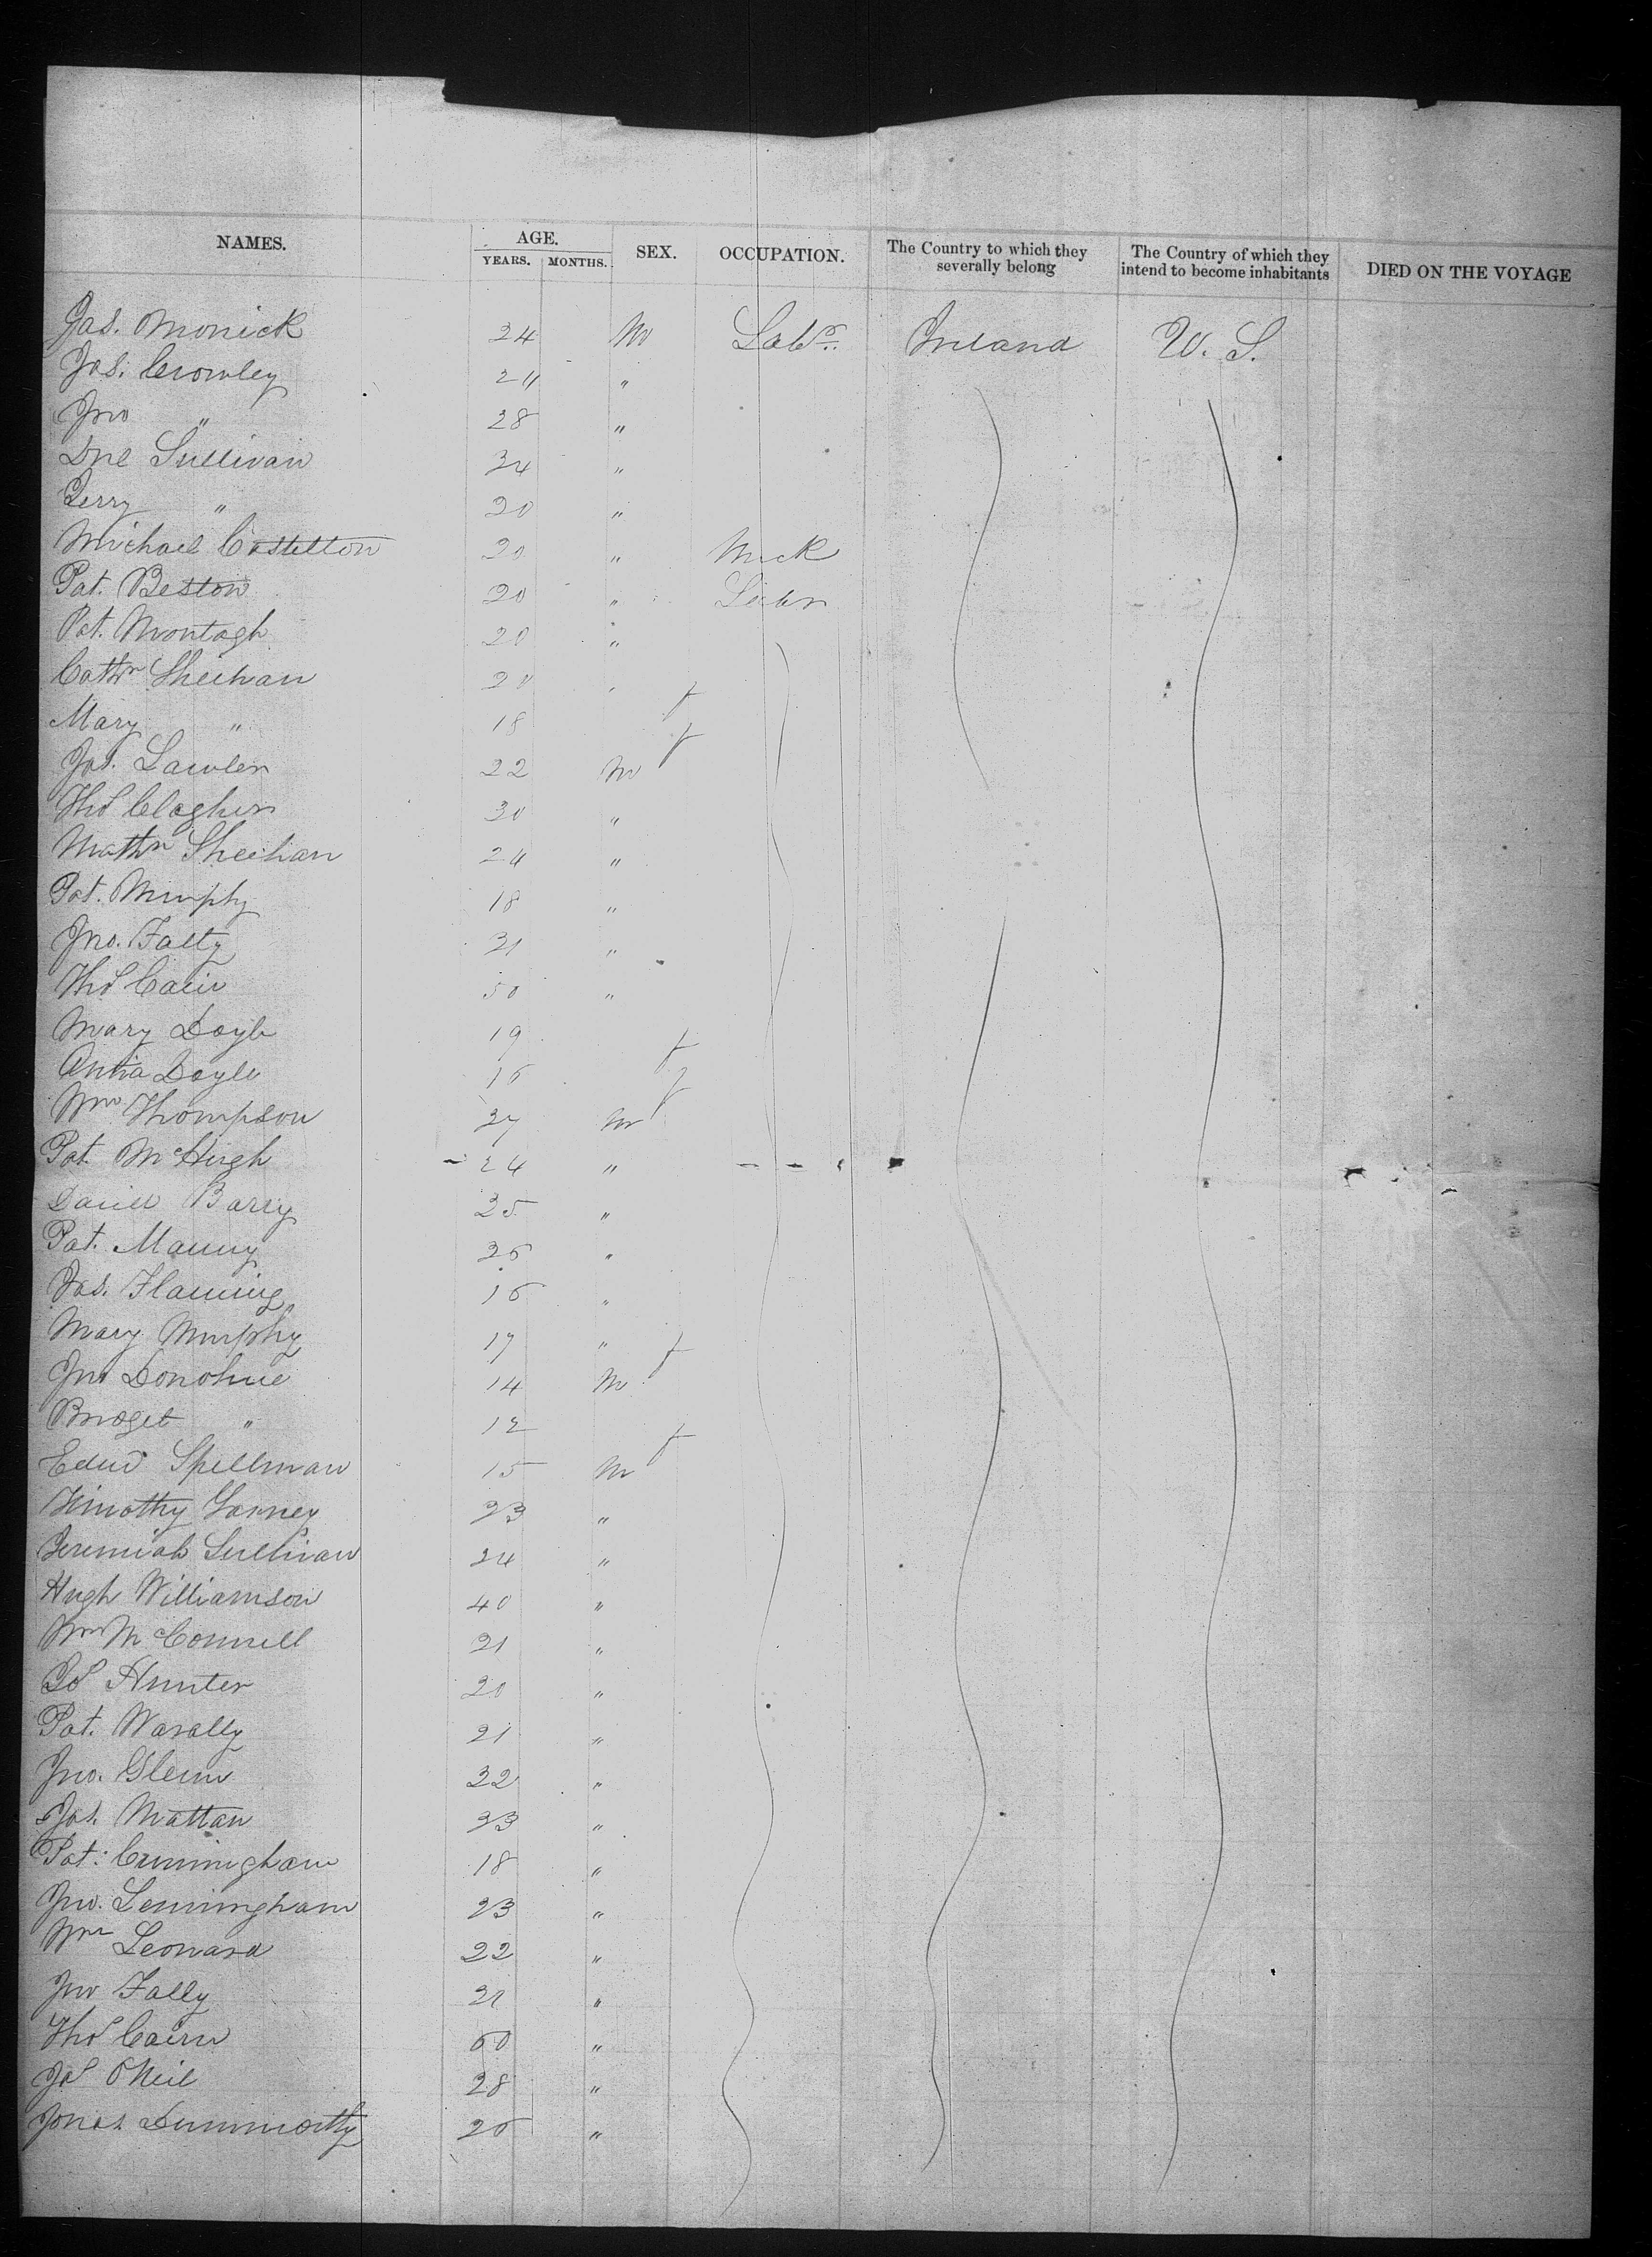 NAMES. AGE. YEARS. MONTHS. SEX. OCCUPATION. The Country to which they severally belong The Country of which they intend to become inhabitants DIED ON THE VOYAGE
Jas. Monick 24 M Labr. Ireland U. S.
Jas. Crowley 24 "
Jno " 28 "
Dnl Sullivan 34 "
Jerry " 20 "
Michael Costelton 20 " Mick
Pat. Beston 20 " Labr
Pat. Montagh 20 "
Cathn Sheehan 20 " f
Mary " 18 f
Jas. Lawler 22 M
Thos Clagher 30 "
Mathw Sheehan 24 "
Pat. Murphy 18 "
Jno. Falty 31 "
Thos Cain 50 "
Mary Doyle 19 f
Anna Doyle 16 f
Wm Thompson 27 M
Pat. McHugh 24 "
Daniel Barry 25 "
Pat. Manny 26 "
Jas. Flaming 16 "
Mary Murphy 17 " f
Jno Donohue 14 M
Bridget " 12 f
Edwd Spellman 15 M
Timothy Garney 23 "
Jeremiah Sullivan 24 "
Hugh Williamson 40 "
Wm McConnell 21 "
Hunter 20 "
Pat. Warally 21 "
Jno. Glenn 32 "
Jas. Mattan 33 "
Pat. Cunningham 18 "
Jno. Lenningham 23 "
Wm Leonard 22 "
Jno Fally 21 "
Thos Cairn 60 "
Jas ONeil 28 "
Jonas Dunmorthy 26 "